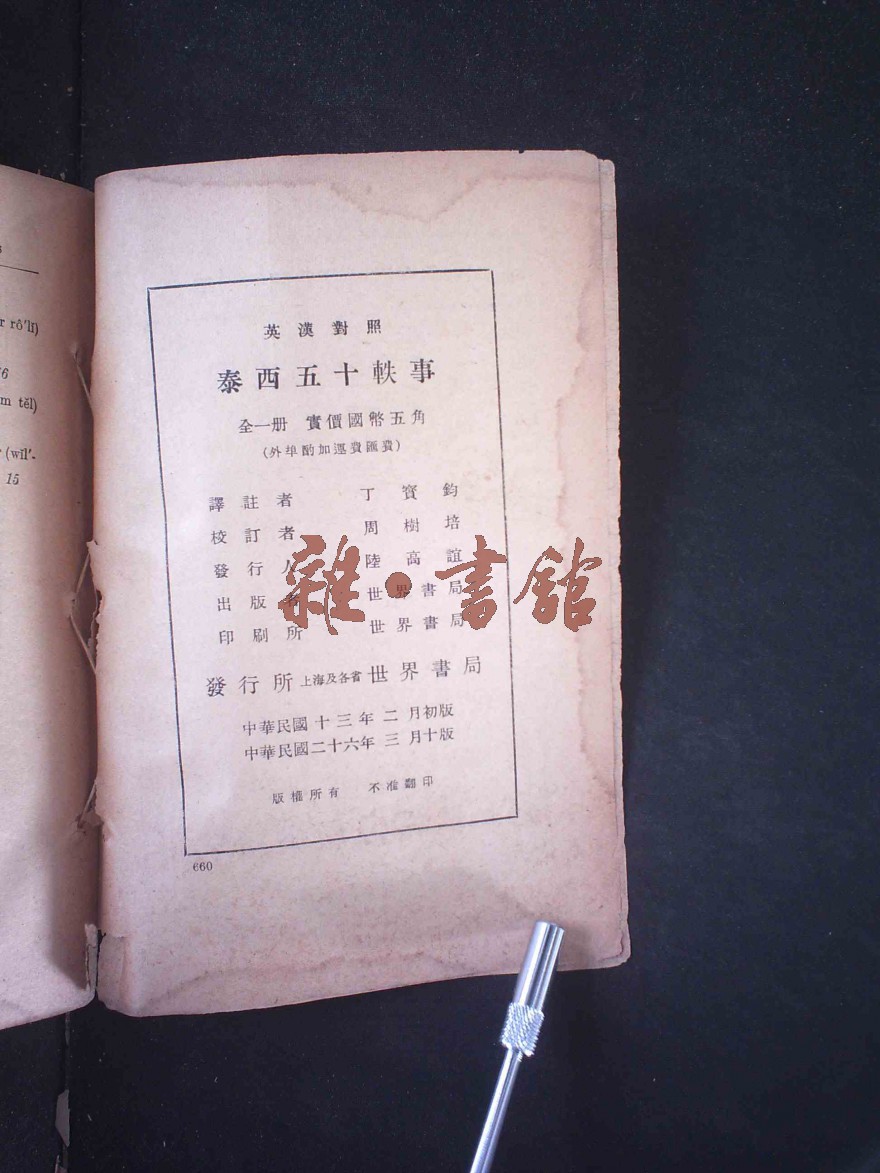 r rô'lf)
6
m tĕl)
(wĭl'-
15
英漢對照
泰西五十軼事
全一册 實價國幣五角
(外埠酌加運費匯費)
譯註者 丁寶鈞
校訂者 周樹培
發行人 陸高誼
出版者 世界書局
印刷所 世界書局
發行所 上海及各省 世界書局
中華民國十三年二月初版
中華民國二十六年三月十版
版權所有 不准翻印
660
雜·書館